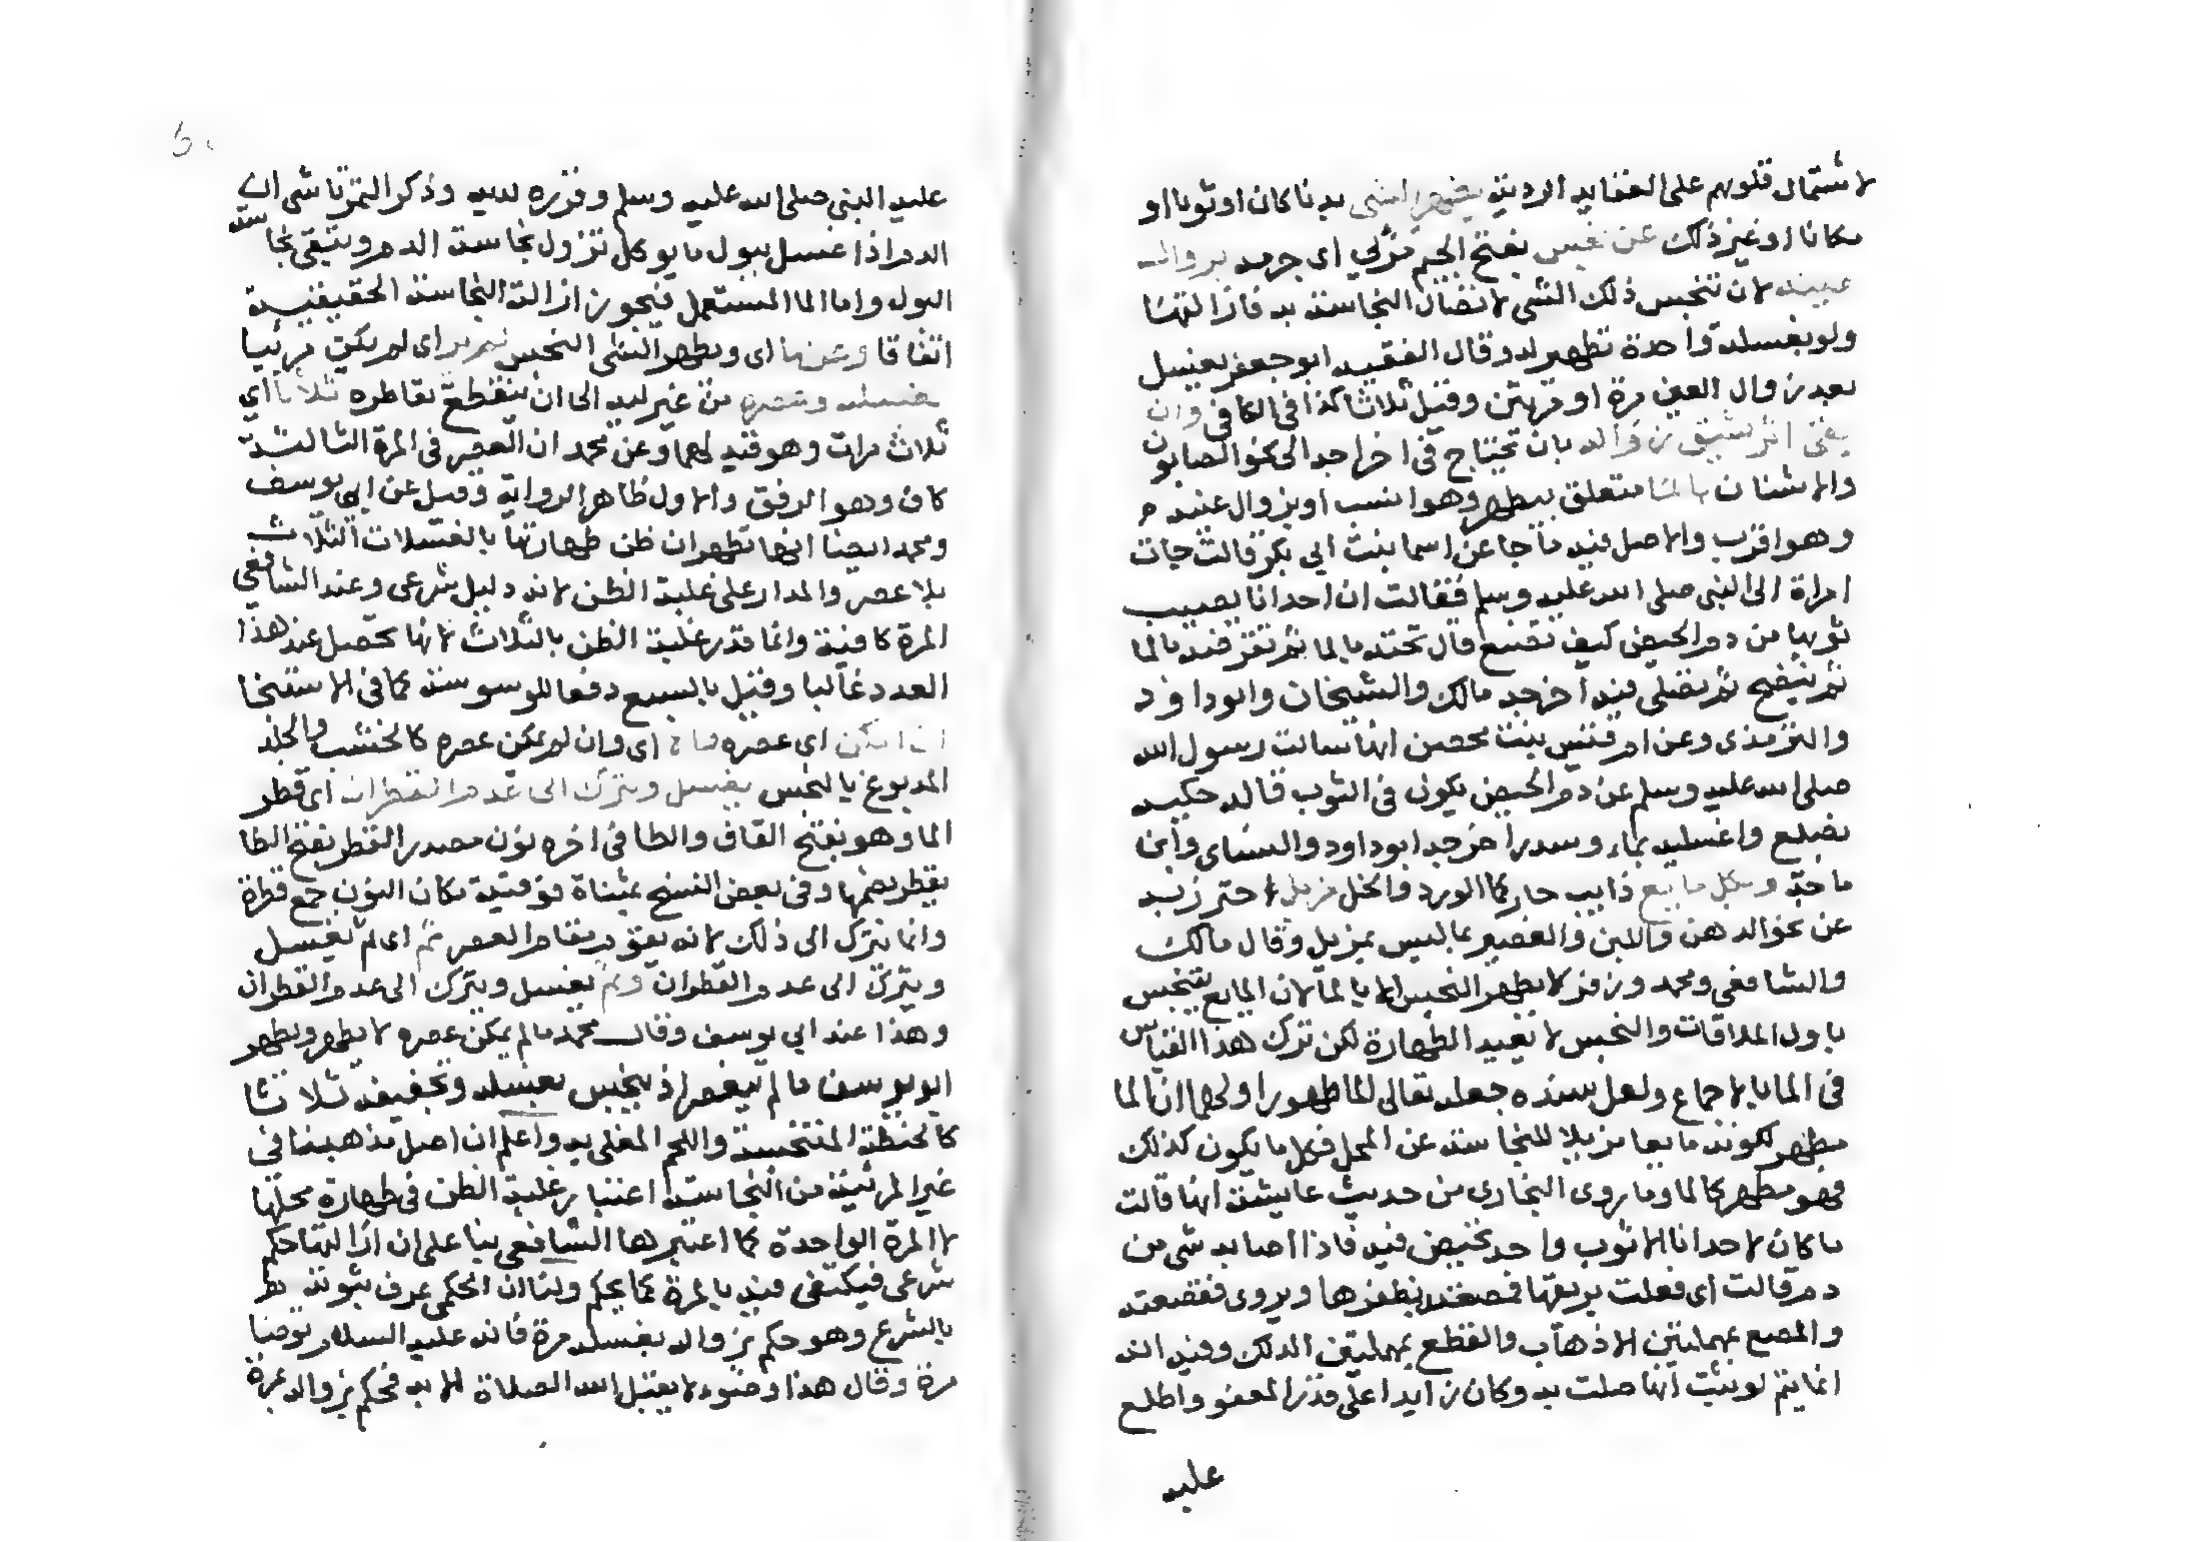 لاشتمال قلوبهم على العقايد الردية يطهر الشي بدنا كان او ثوبا او
مكانا او غير ذلك عن نجس بفتح الجيم مرئي اي جرمه بزوال
عينه لان تنجس ذلك الشي لاتصال النجاسة به فازالتها
ولو بغسلة واحدة تطهير له وقال الفقيه ابو جعفر يغسل
بعد زوال العين مرة او مرتين وقيل ثلاثا كذا في الكافي وان
بقى اثر يشق زواله بان تحتاج في اخراجه الى نحو الصابون
والاشنان بالما متعلق بيطهر وهو انسب او بزوال عينه
وهو اقرب والاصل فيه ما جا عن اسما بنت ابي بكر قالت جات
امراة الى النبي صلى الله عليه وسلم فقالت ان احدانا يصيب
ثوبها من دم الحيض كيف تصنع قال تحته بالما ثم تقرفيه بالما
ثم ينضح ثم تصلي فيه اخرجه مالك والشيخان وابو داود
والترمذي وعن ام قيس بنت محصن انها سالت رسول الله
صلى الله عليه وسلم عن دم الحيض يكون في الثوب قال له حكيه
بضلع واغسليه بماء وسدر اخرجه ابو داود والنساي وابن
ماجة وبكل مايع ذايب حار كما الورد والخل مزيل احترز به
عن نحو الدهن واللبن والعصير مما ليس بمزيل وقال مالك
والشافعي ومحمد وزفر لا يطهر النجس الا بالما لان المايع يتنجس
باول الملاقات والنجس لا يفيد الطهارة لكن ترك هذا القياس
في الما بالاجماع ولعل سنده جعله تعالى الما طهورا ولهما ان الما
مطهر لكونه مايعا مزيلا للنجاسة عن المحل فكل ما يكون كذلك
فهو مطهر كالما وما روى البخاري من حديث عايشة انها قالت
ما كان لاحدانا الا ثوب واحد تحيض فيه فاذا اصابه شي من
دم قالت اي فعلت بريقها فمصعته بظفرها ويروى فقصعته
والمصع بمهملتين الاذهاب والقطع بمهملتين الدلك وفيه انه
انما يتم لو ثبت انها صلت به وكان زايدا على قدر المعفو واطلع
عليه
عليه النبي صلى الله عليه وسلم وقرره لديه وذكر التمرتاشي ان
الدم اذا غسل ببول ما يوكل تزول نجاسة الدم ويبقى نجاسة
البول واما الما المستعمل فيجوز ازالة النجاسة الحقيقية
اتفاقا وعن ما اي ويطهر الشي النجس لم ير اي لم يكن مرئيا
بغسله وعصره من غير لبد الى ان ينقطع تقاطره ثلاثا اي
ثلاث مرات وهو قيد لهما وعن محمد ان العصر في المرة الثالثة
كاف وهو الرفق والاول ظاهر الرواية وقيل عن ابي يوسف
ومحمد ايضا انها تطهر ان ظن طهارتها بالغسلات الثلاث
بلا عصر والمدار على غلبة الظن لانه دليل شرعي وعند الشافعي
المرة كافية وانما قدر غلبة الظن بالثلاث لانها تحصل عند هذا
العدد غالبا وقيل بالسبع دفعا للوسوسة كما في الاستنجا
ان امكن اي عصره والا اي وان لم يمكن عصره كالخشب والجلد
المدبوغ بالنجس يغسل ويترك الى عدم القطران اي قطر
الما وهو بفتح القاف والطا في اخره نون مصدر القطر بفتح الطا
يقطر بضمها وفي بعض النسخ بمثناة فوقية مكان النون جمع قطرة
وانما يترك الى ذلك لانه يقوم مقام العصر ثم اي ثم يغسل
ويترك الى عدم القطران وثم يغسل ويترك الى عدم القطران
وهذا عند ابي يوسف وقال محمد ما لم يمكن عصره لا يطهر ويطهر
ابو يوسف ما لم ينعصر اذ ينجس بغسله وتجفيفه ثلاثا
كالحنطة المتنجسة واللحم المغلي به واعلم ان اصل مذهبنا في
غير المرئية من النجاسة اعتبار غلبة الظن في طهارة محلها
لا المرة الواحدة كما اعتبرها الشافعي بنا على ان ازالتها حكم
شرعي فيكتفى فيه بالمرة كما يحكم ولنا ان الحكمي عرف ثبوته
بالشرع وهو حكم بزواله بغسله مرة فانه عليه السلام توضا
مرة وقال هذا وضوء لا يقبل الله الصلاة الا به فحكم بزواله بمرة